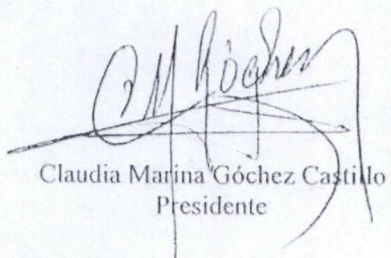 CM Góchez
Claudia Marina Góchez Castillo
Presidente